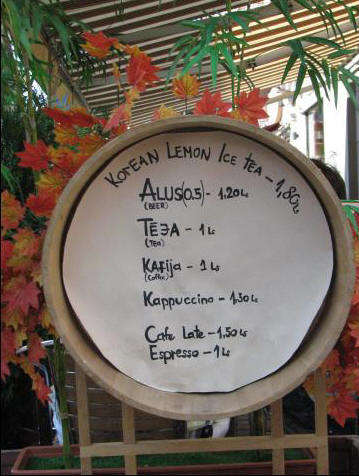 KOREAN LEMON ICE TEA - 1,80Ls
ALUS(0.5) - 1,20Ls
(BEER)
TĒJA - 1Ls
(TEA)
KAFija - 1Ls
(Coffee)
Kappuccino - 1,30Ls
Cafe Late - 1,50Ls
Espresso - 1Ls